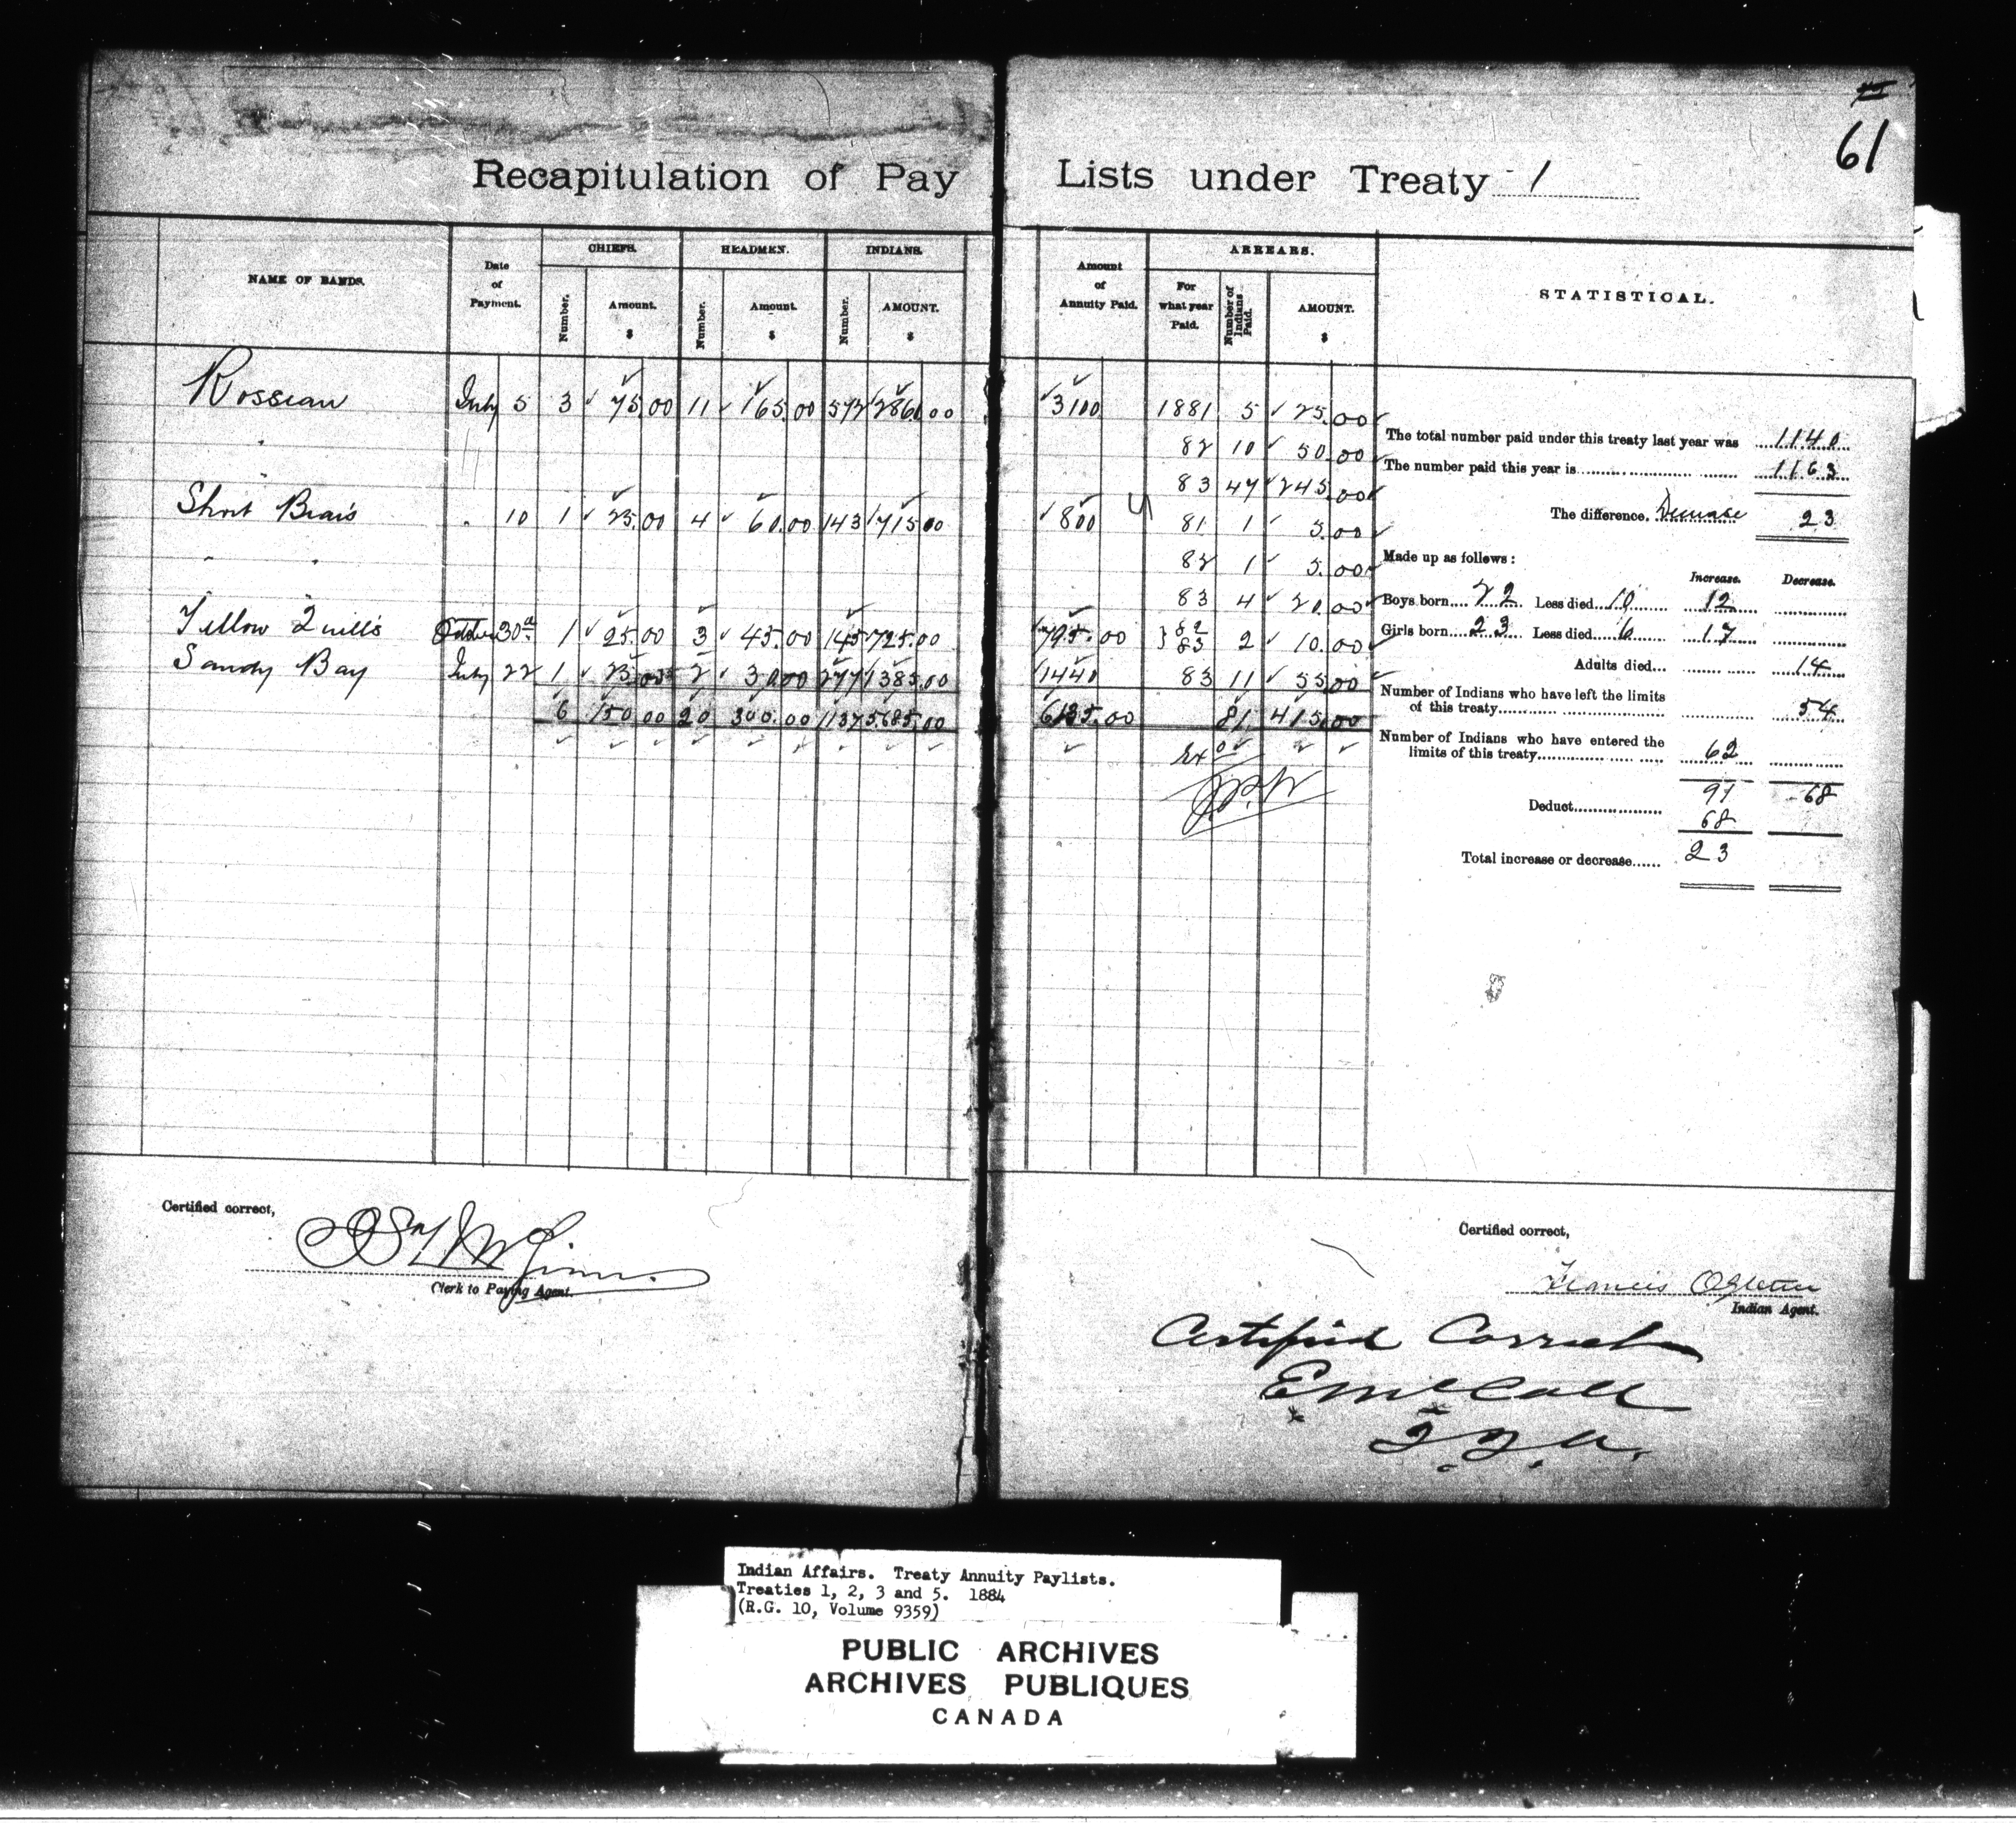 61
Recapitulation of Pay Lists under Treaty 1
NAME OF BANDS. Date of Payment. CHIEFS. Number. Amount. $ HEADMEN. Number. Amount. $ INDIANS. Number. AMOUNT. $ Amount of Annuity Paid. ARREARS. For what year Paid. Number of Indians Paid. AMOUNT. $ STATISTICAL.
Rosseau July 5 3 75.00 11 165.00 572 2860.00 3100 1881 5 25.00
82 10 50.00
83 47 245.00
Short Bears " 10 1 25.00 4 60.00 143 715.00 800 81 1 5.00
82 1 5.00
83 4 20.00
Yellow Quill's October 30th 1 25.00 3 45.00 145 725.00 795.00 } 82 83 2 10.00
Sandy Bay July 22 1 25.00 2 30.00 277 1385.00 1440 83 11 55.00
6 150.00 20 300.00 1137 5685.00 6135.00 81 415.00
The total number paid under this treaty last year was 1140
The number paid this year is 1163
The difference. 23
Made up as follows:
Increase. Decrease.
Boys born 22 Less died 10 12
Girls born 23 Less died 6 17
Adults died 14
Number of Indians who have left the limits
of this treaty 54
Number of Indians who have entered the
limits of this treaty 62
91 68
Deduct 68
Total increase or decrease 23
Certified correct,
Clerk to Paying Agent.
Certified correct,
Francis Ogletree
Indian Agent.
Certified Correct
E McColl
Indian Affairs. Treaty Annuity Paylists.
Treaties 1, 2, 3 and 5. 1884
(R.G. 10, Volume 9359)
PUBLIC ARCHIVES
ARCHIVES PUBLIQUES
CANADA